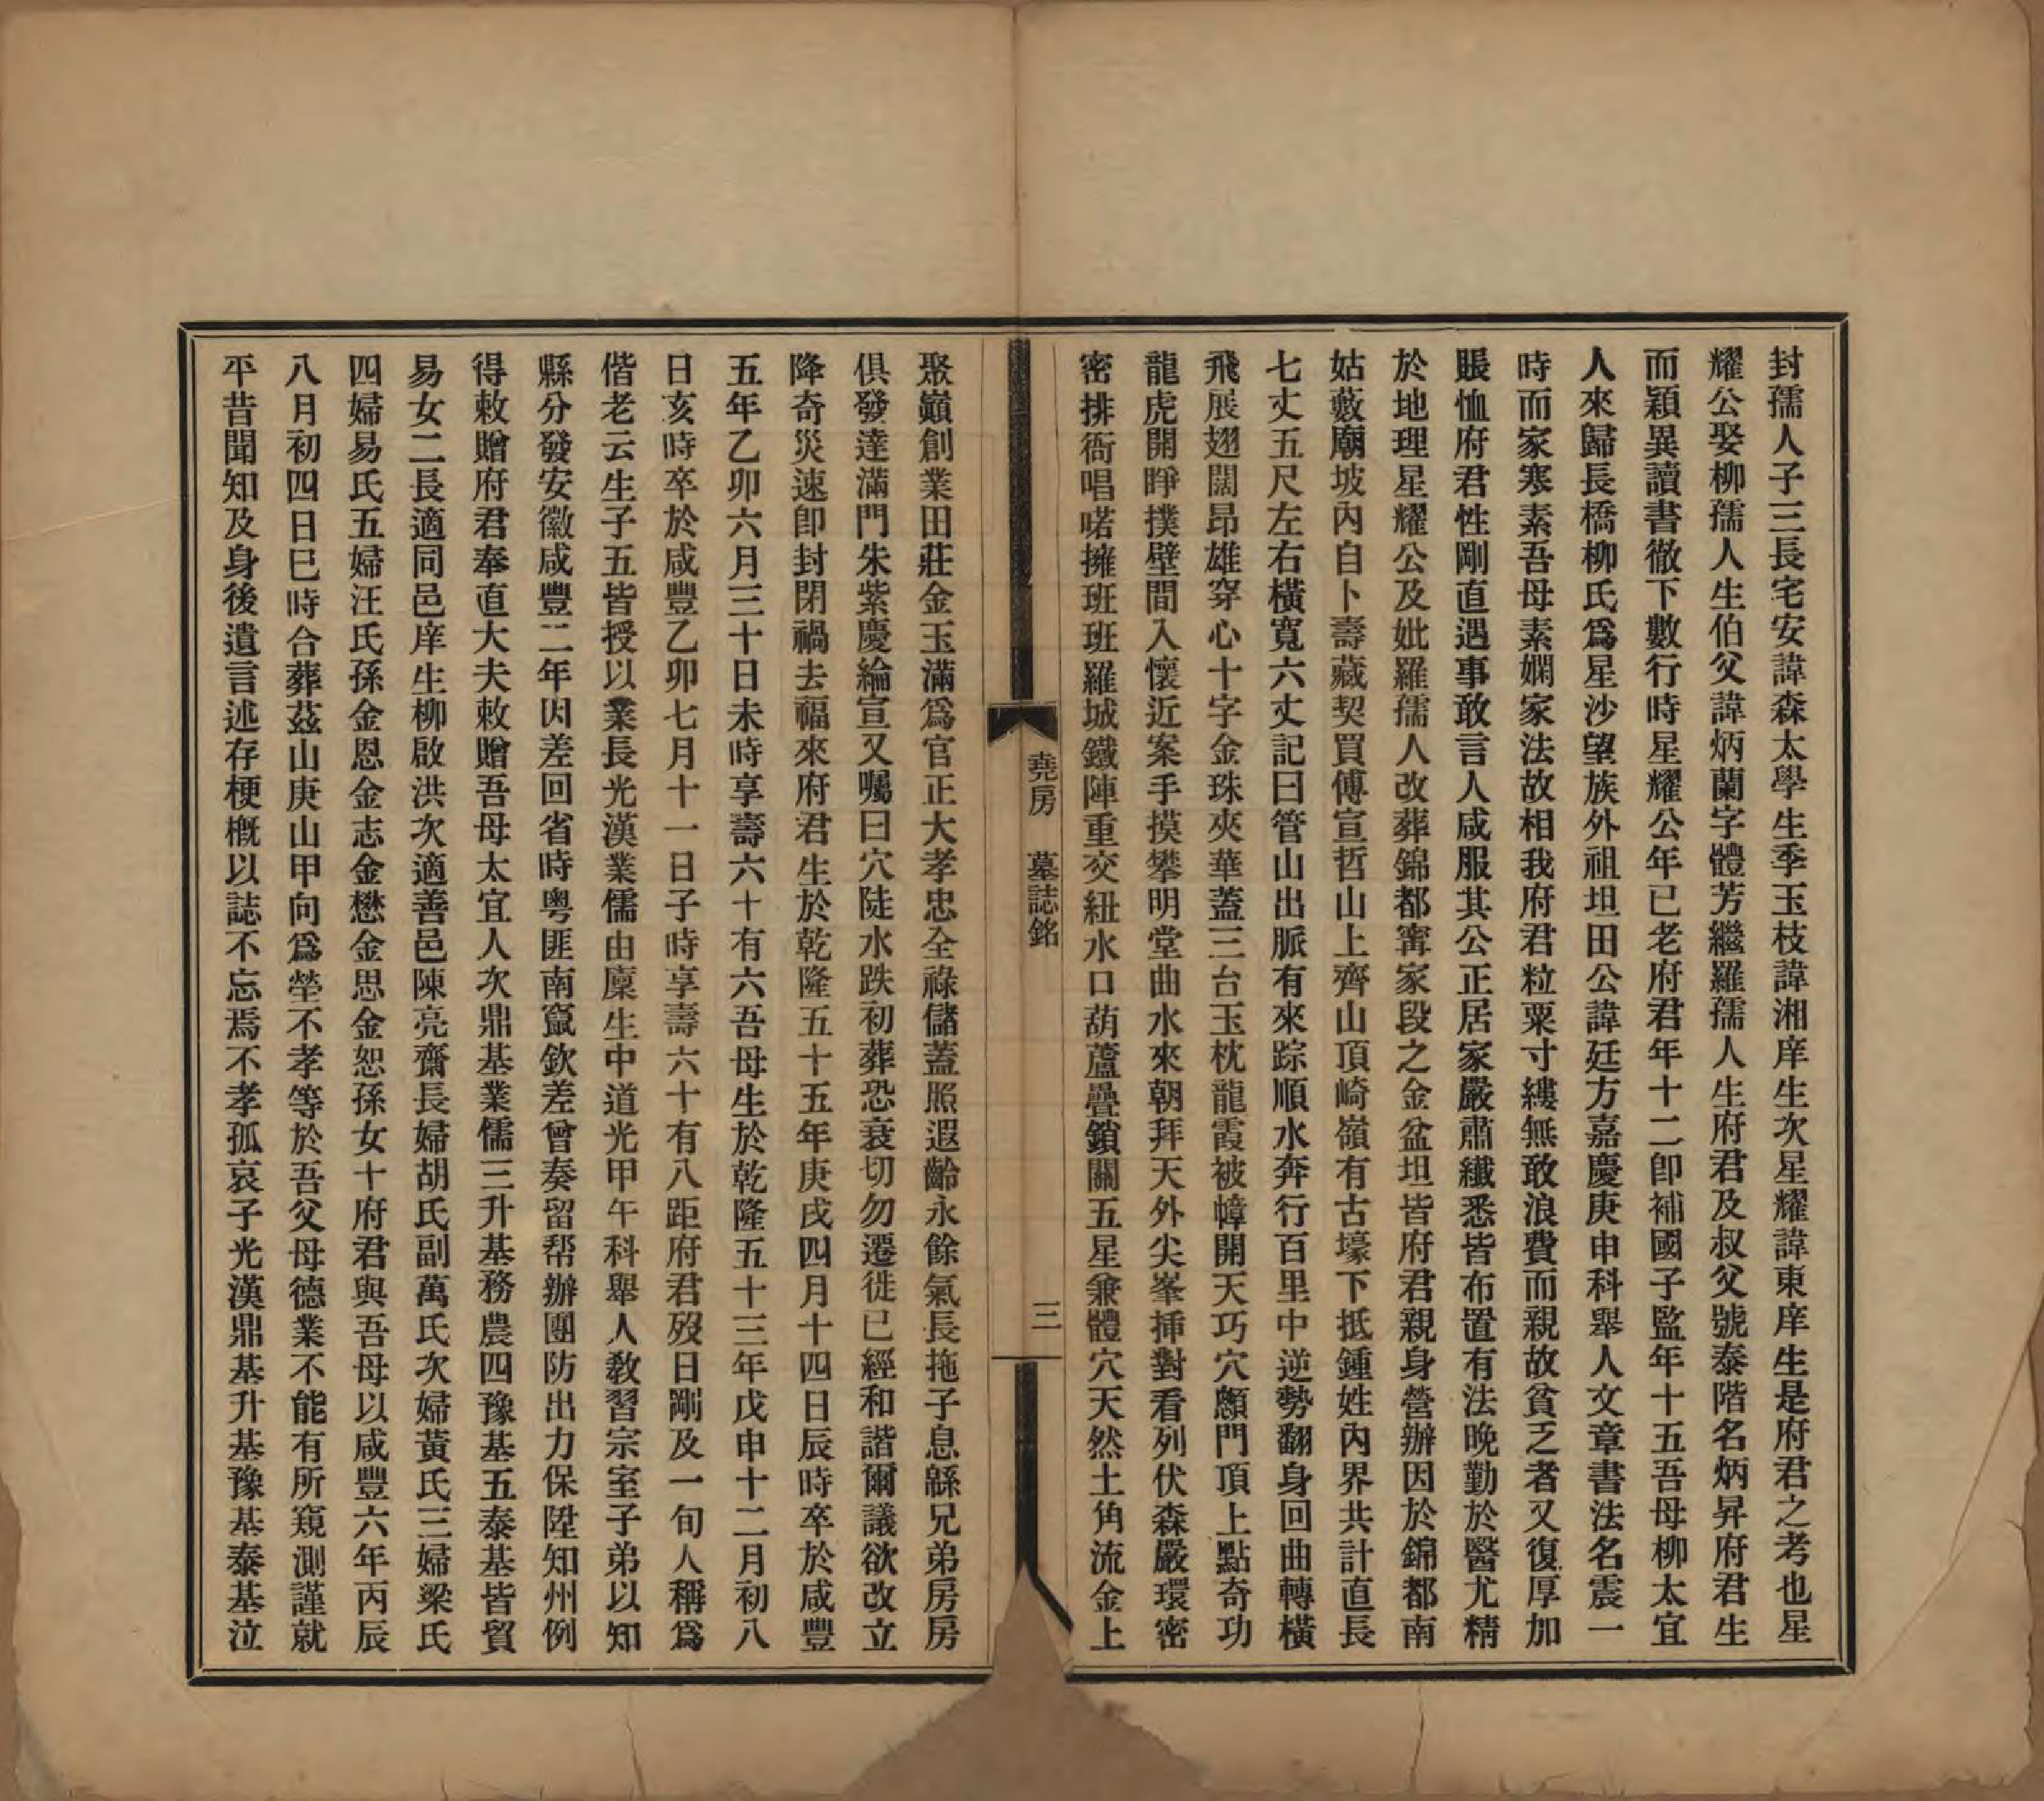 封孺人子三長宅安諱森太學生季玉枝諱湘庠生次星耀諱東庠生是府君之考也星
耀公娶柳孺人生伯父諱炳蘭字體芳繼羅孺人生府君及叔父號泰階名炳昇府君生
而穎異讀書徹下數行時星耀公年已老府君年十二卽補國子監年十五吾母柳太宜
人來歸長橋柳氏爲星沙望族外祖坦田公諱廷方嘉慶庚申科舉人文章書法名震一
時而家寒素吾母素嫻家法故相我府君粒粟寸縷無敢浪費而親故貧乏者又復厚加
賬恤府君性剛直遇事敢言人咸服其公正居家嚴肅纖悉皆布置有法晚勤於醫尤精
於地理星耀公及妣羅孺人改葬錦都甯家段之金盆坦皆府君親身營辦因於錦都南
姑藪廟坡內自卜壽藏契買傅宣哲山上齊山頂崎嶺有古壕下抵鍾姓內界共計直長
七丈五尺左右橫寬六丈記曰管山出脈有來踪順水奔行百里中逆勢翻身回曲轉橫
飛展翅闊昂雄穿心十字金珠夾華蓋三台玉枕龍霞被幛開天巧穴顱門頂上點奇功
龍虎開睜撲壁間入懷近案手摸攀明堂曲水來朝拜天外尖峯挿對看列伏森嚴環密
密排衙唱喏擁班班羅城鐵陣重交紐水口葫蘆疊鎖關五星兼體穴天然土角流金上
堯房 墓誌銘 三
聚巓創業田莊金玉滿爲官正大孝忠全祿儲蓋照遐齡永餘氣長拖子息緜兄弟房房
俱發達滿門朱紫慶綸宣又囑曰穴陡水跌初葬恐衰切勿遷徙已經和諧爾議欲改立
降奇災速卽封閉禍去福來府君生於乾隆五十五年庚戌四月十四日辰時卒於咸豐
五年乙卯六月三十日未時享壽六十有六吾母生於乾隆五十三年戊申十二月初八
日亥時卒於咸豐乙卯七月十一日子時享壽六十有八距府君歿日剛及一旬人稱爲
偕老云生子五皆授以業長光漢業儒由廩生中道光甲午科舉人教習宗室子弟以知
縣分發安徽咸豐二年因差回省時粤匪南竄欽差曾奏留帮辦團防出力保陞知州例
得敕贈府君奉直大夫敕贈吾母太宜人次鼎基業儒三升基務農四豫基五泰基皆貿
易女二長適同邑庠生柳啟洪次適善邑陳亮齋長婦胡氏副萬氏次婦黃氏三婦梁氏
四婦易氏五婦汪氏孫金恩金志金懋金思金恕孫女十府君與吾母以咸豐六年丙辰
八月初四日巳時合葬茲山庚山甲向爲塋不孝等於吾父母德業不能有所窺測謹就
平昔聞知及身後遺言述存梗槪以誌不忘焉不孝孤哀子光漢鼎基升基豫基泰基泣